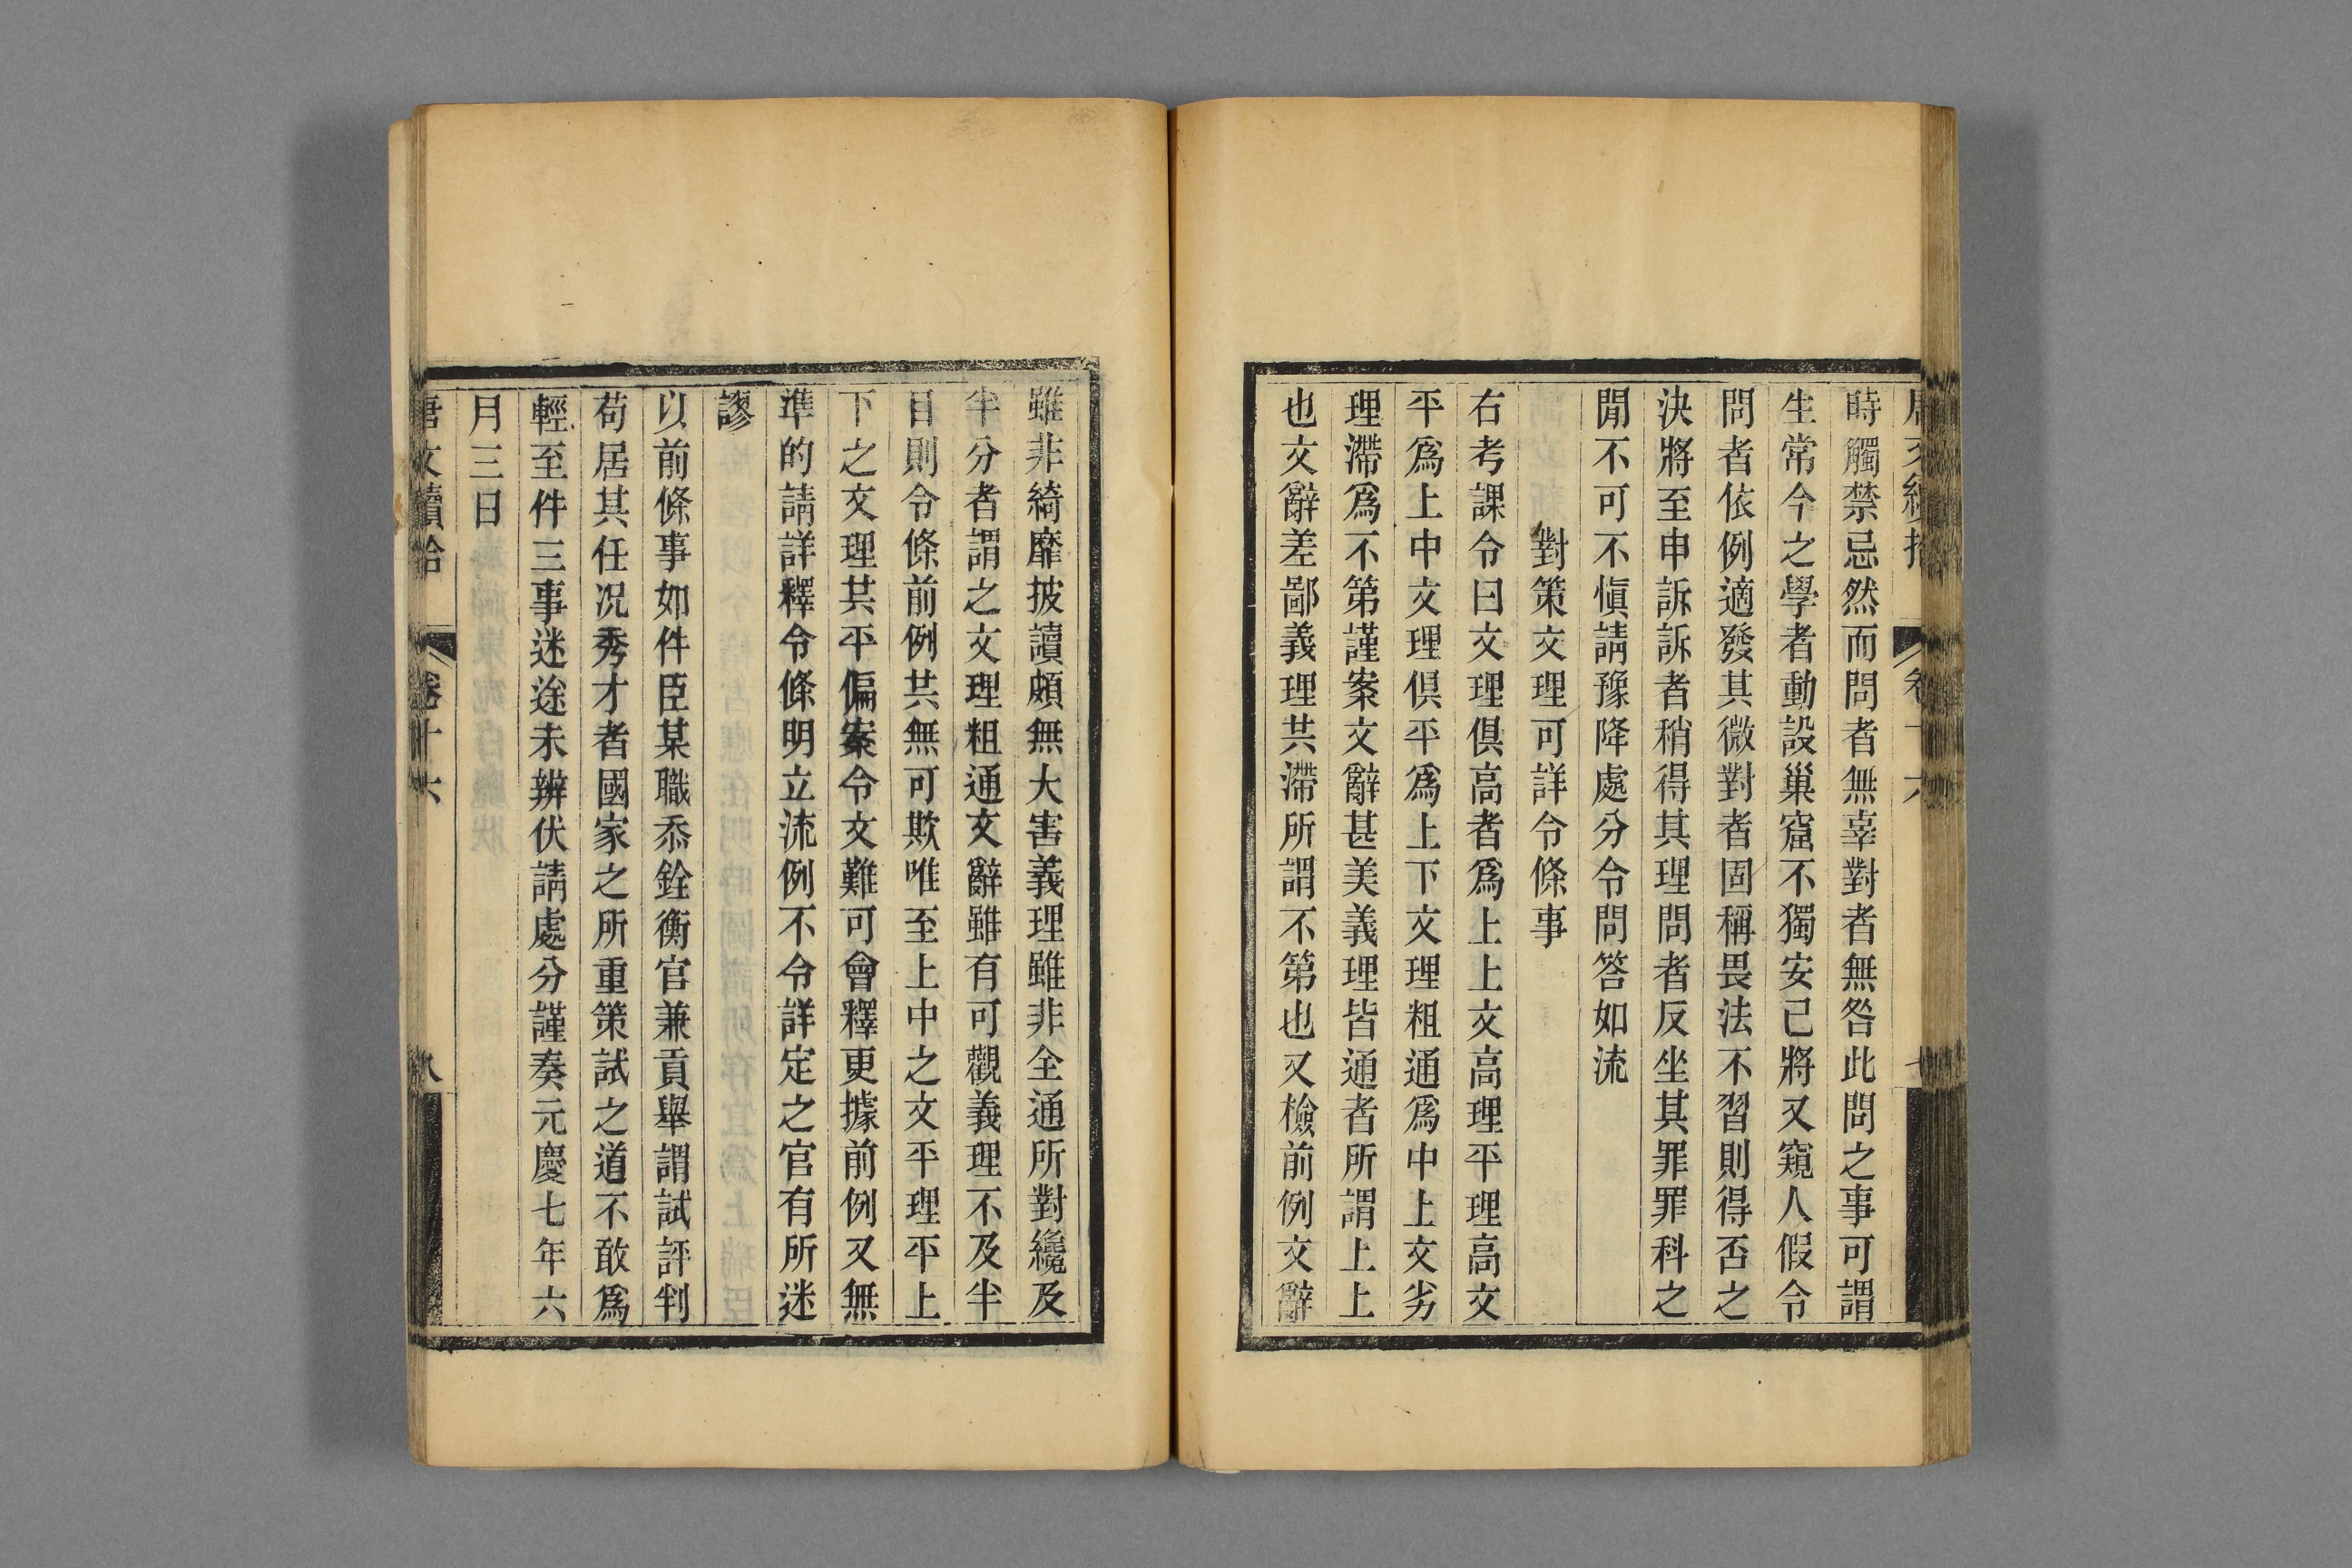 時觸禁忌然而問者無辜對者無咎此問之事可謂
生常今之學者動設巢窟不獨安己將又窺人假令
問者依例適發其微對者固稱畏法不習則得否之
決將至申訴訴者稍得其理問者反坐其罪罪科之
閒不可不愼請豫降處分令問答如流
對策文理可詳令條事
右考課令曰文理俱高者爲上上文高理平理高文
平爲上中文理俱平爲上下文理粗通爲中上文劣
理滯爲不第謹案文辭甚美義理皆通者所謂上上
也文辭差鄙義理共滯所謂不第也又檢前例文辭
雖非綺靡披讀頗無大害義理雖非全通所對纔及
半分者謂之文理粗通文辭雖有可觀義理不及半
目則令條前例共無可欺唯至上中之文平理平上
下之文理其平偏案令文難可會釋更據前例又無
準的請詳釋令條明立流例不令詳定之官有所迷
謬
以前條事如件臣某職忝銓衡官兼貢舉謂試評判
苟居其任況秀才者國家之所重策試之道不敢爲
輕至件三事迷途未辨伏請處分謹奏元慶七年六
月三日
唐文續拾
卷十六
八